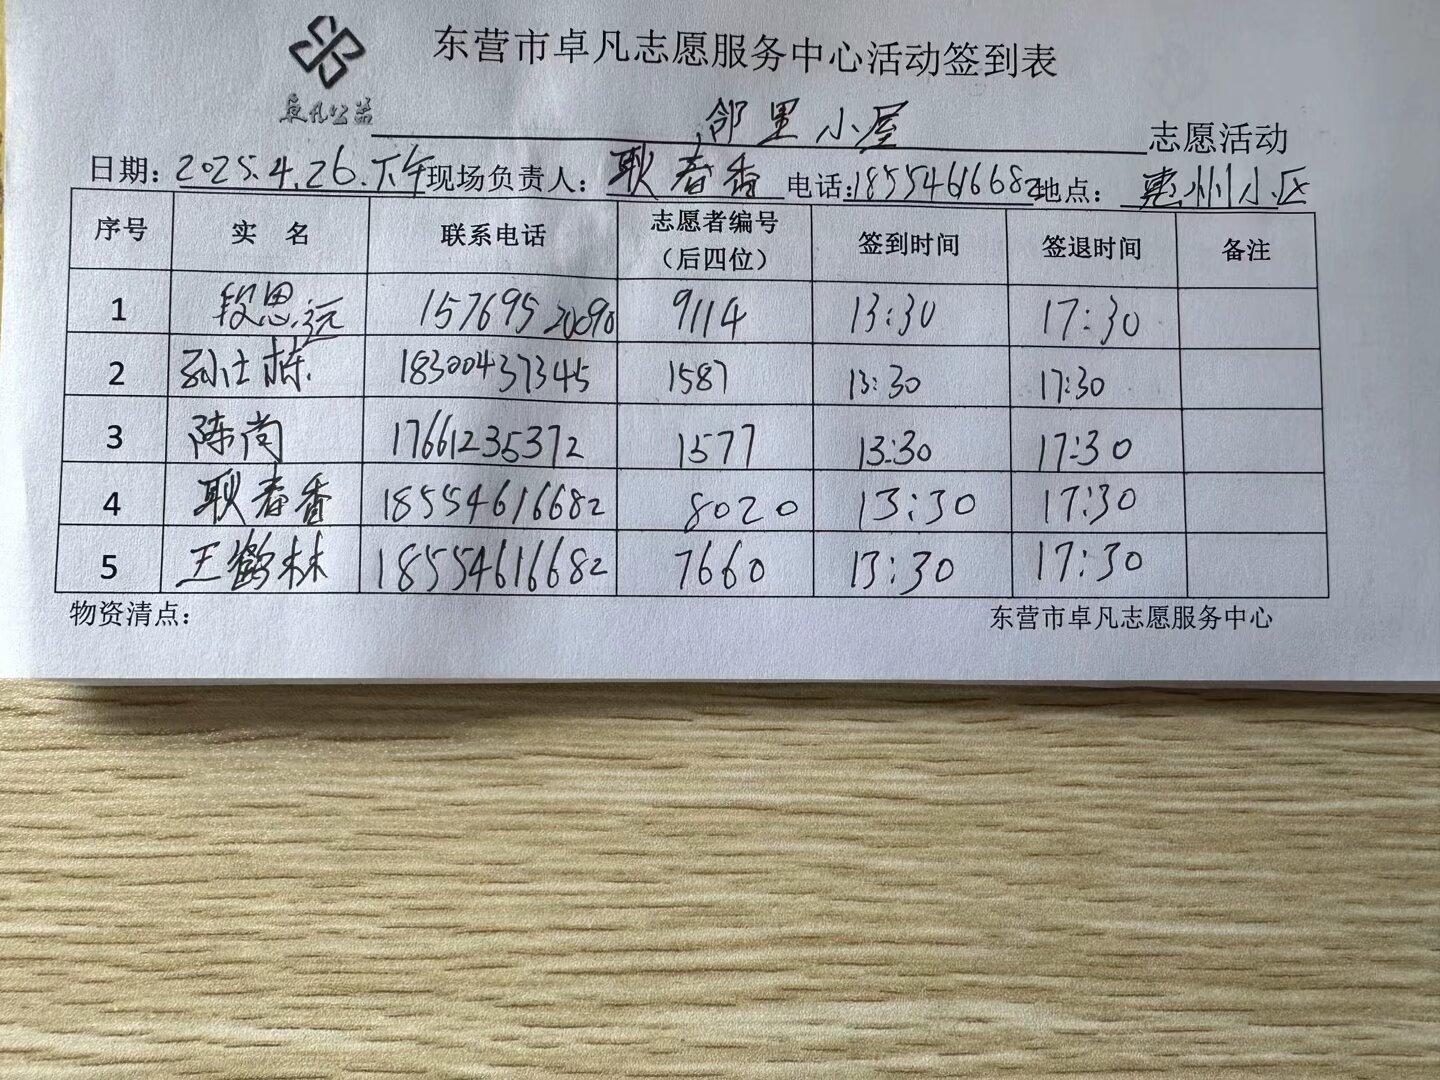 东营市卓凡志愿服务中心活动签到表
卓凡公益
邻里小屋 志愿活动
日期：2025.4.26.下午 现场负责人：耿春香 电话：18554616682 地点：惠州小区
序号 实 名 联系电话 志愿者编号（后四位） 签到时间 签退时间 备注
1 段思远 15769520090 9114 13:30 17:30
2 孙仕栋 18300437345 1587 13:30 17:30
3 陈尚 17661235372 1577 13:30 17:30
4 耿春香 18554616682 8020 13:30 17:30
5 王鹤林 18554616682 7660 13:30 17:30
物资清点： 东营市卓凡志愿服务中心